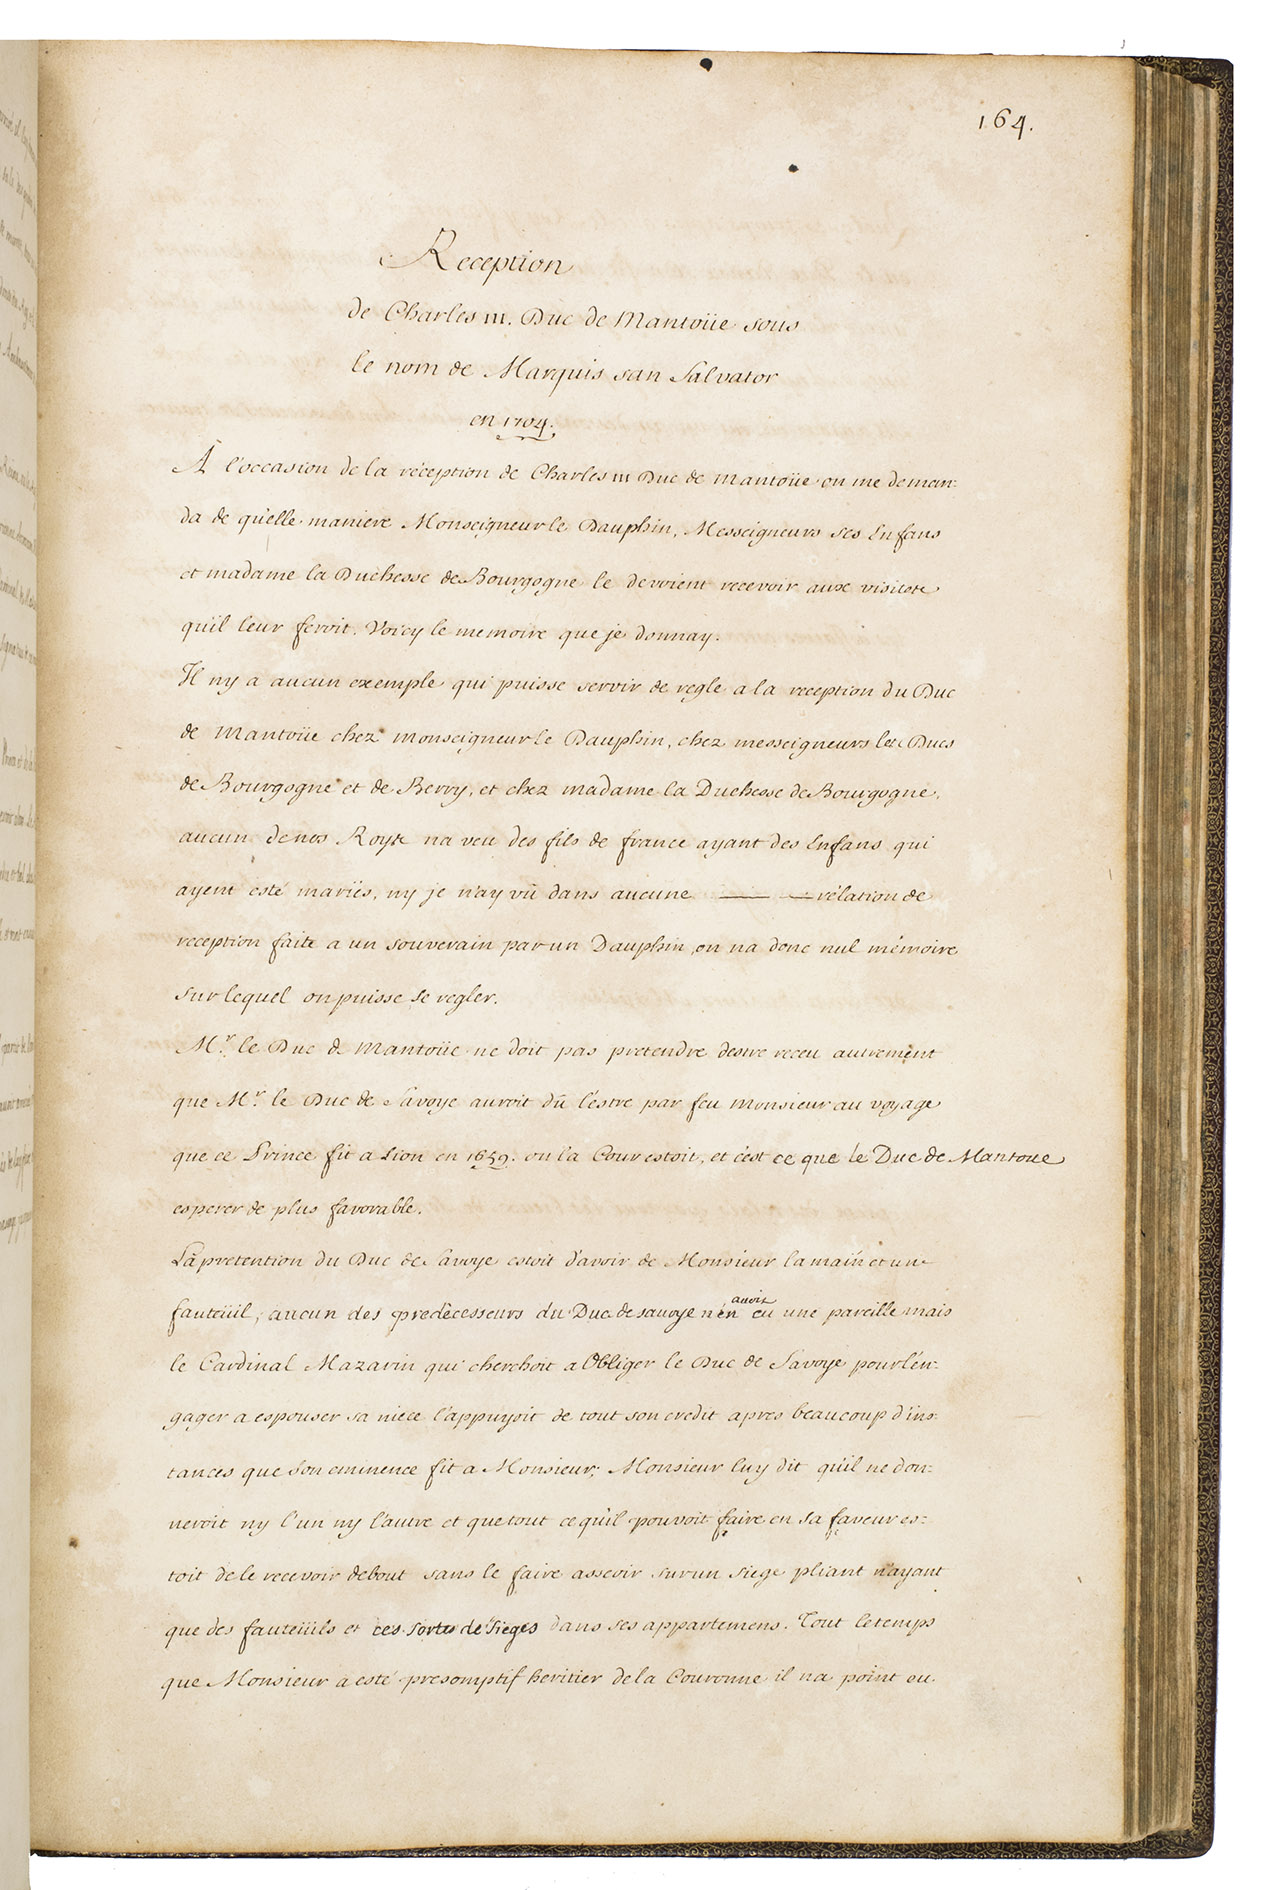 164.
Reception
de Charles III. Duc de Mantoüe sous
le nom de Marquis san Salvator
en 1704.
A l'occasion de la réception de Charles III Duc de mantoüe on me deman-
da de quelle maniere Monseigneur le Dauphin, Messeigneurs ses Enfans
et madame la Duchesse de Bourgogne le devoient recevoir aux visites
qu'il leur feroit. Voicy le memoire que je donnay.
Il ny a aucun exemple qui puisse servir de regle a la reception du Duc
de Mantoüe chez monseigneur le Dauphin, chez messeigneurs les Ducs
de Bourgogne et de Berry, et chez madame la Duchesse de Bourgogne,
aucun de nos Roys na veu des fils de france ayant des Enfans qui
ayent esté mariés, ny je n'ay vû dans aucune rélation de
reception faite a un souverain par un Dauphin, on na donc nul mémoire
sur lequel on puisse se regler.
Mr. le Duc de Mantoüe ne doit pas pretendre destre receu autrement
que Mr. le Duc de Savoye auroit dû l'estre par feu Monsieur au voyage
que ce Prince fit a Lion en 1659. ou la Cour estoit, et c'est ce que le Duc de Mantoue
esperer de plus favorable.
La pretention du Duc de Savoye estoit d'avoir de Monsieur la main et un
fauteüil; aucun des predécesseurs du Duc de savoye n'en avoit eu une pareille mais
le Cardinal Mazarin qui cherchoit a Obliger le Duc de Savoye pour l'en-
gager a espouser sa niece l'appuyoit de tout son credit apres beaucoup d'ins-
tances que Son eminence fit a Monsieur; Monsieur luy dit qu'il ne don-
neroit ny l'un ny l'autre et que tout ce qu'il pouvoit faire en sa faveur es-
toit de le recevoir debout sans le faire asseoir sur un siege pliant n'ayant
que des fauteüils et ces sortes de sieges dans ses appartemens. Tout le temps
que Monsieur a esté presomptif heritier de la Couronne il na point eu